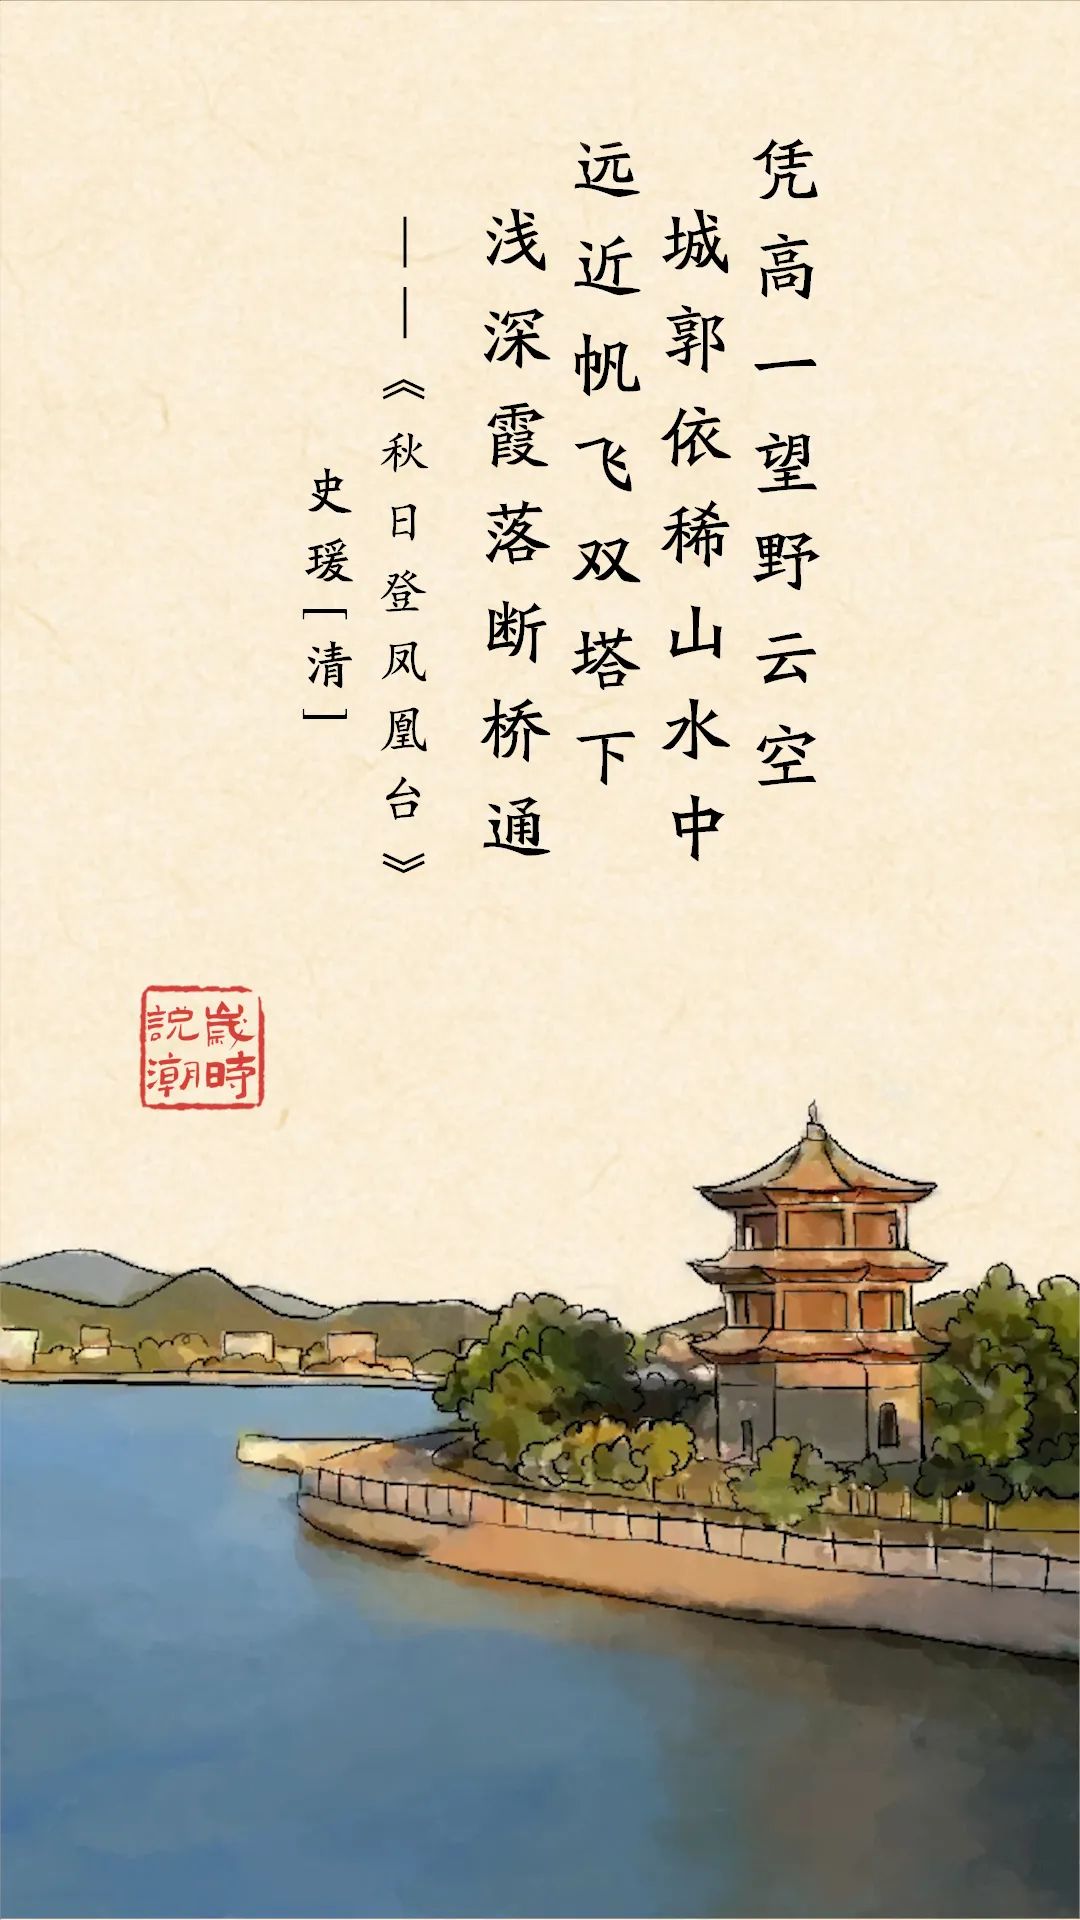 凭高一望野云空
城郭依稀山水中
远近帆飞双塔下
浅深霞落断桥通
——《秋日登凤凰台》
史瑗[清]
歲時
說潮